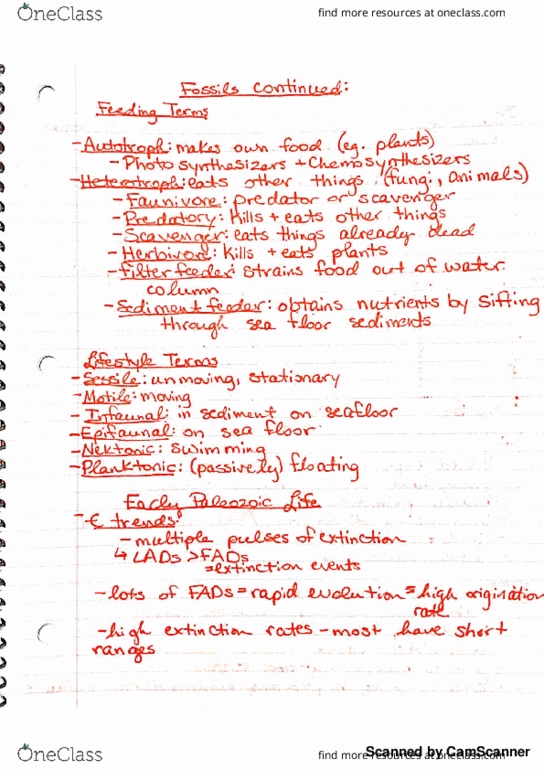 OneClass
find more resources at oneclass.com
Fossils continued:
Feeding Terms
- Autotroph: makes own food (eg. plants)
- Photosynthesizers + Chemosynthesizers
- Heterotroph: eats other things (fungi, animals)
- Faunivore: predator or scavenger
- Predatory: kills + eats other things
- Scavenger: eats things already dead
- Herbivore: kills + eats plants
- Filter feeder: strains food out of water
column
- Sediment feeder: obtains nutrients by sifting
through sea floor sediments
Lifestyle Terms
- Sessile: unmoving, stationary
- Motile: moving
- Infaunal: in sediment on seafloor
- Epifaunal: on sea floor
- Nektonic: swimming
- Planktonic: (passively) floating
Early Paleozoic Life
- Є trends:
- multiple pulses of extinction
↳ LADs > FADs
= extinction events
- lots of FADs = rapid evolution = high origination
rate
- high extinction rates - most have short
ranges
OneClass
find more resources at oneclass.com
Scanned by CamScanner